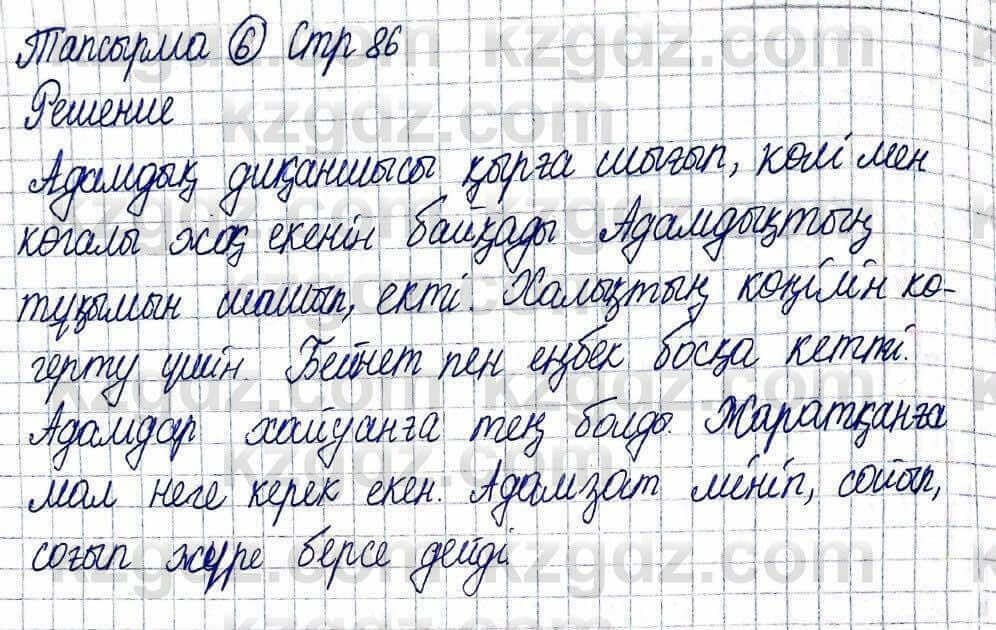 Тапсырма 6 Стр 86
Решение
Адамдық диқаншысы қырға шығып, көлі мен
көгалы жоқ екенін байқады Адамдықтың
тұқымын шашып, екті. Халықтың көңілін кө-
герту үшін. Бейнет пен еңбек босқа кетті.
Адамдар хайуанға тең болды. Жаратқанға
мал неге керек екен. Адамзат мініп, сойып,
соғып жүре берсе дейді
kzgdz.com